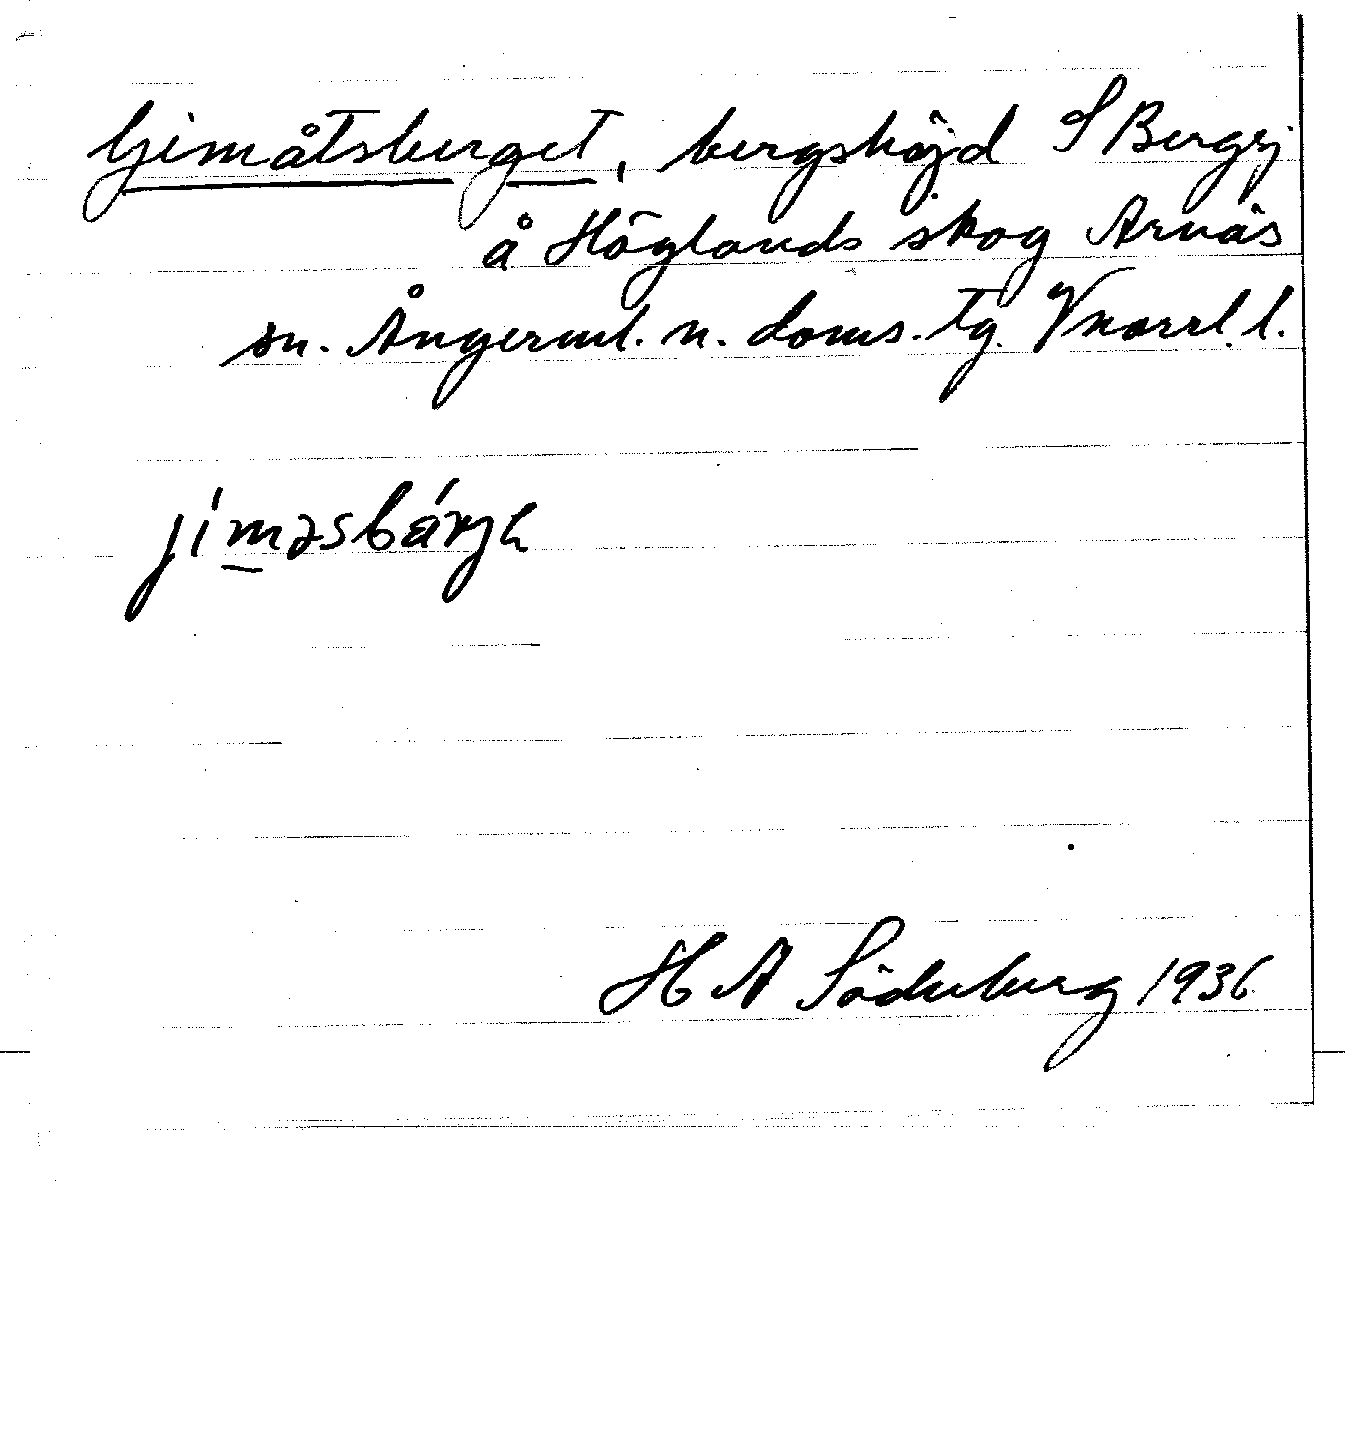 Gimåtsberget, bergshöjd S Bergsj
å Höglands skog Arnäs
sn. Ångerml. n. doms. tg. Vnorrl. l.
jíməsbárjh
H A Söderberg 1936